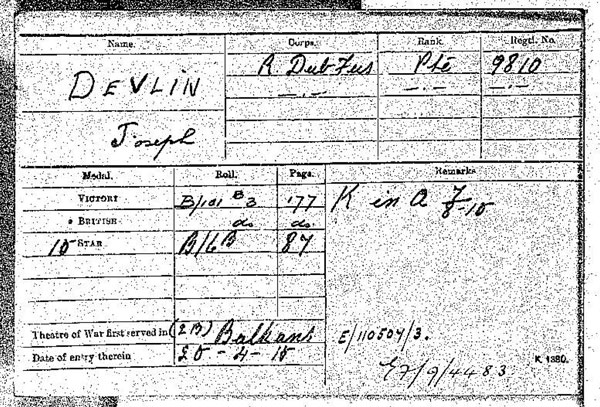 Name. Corps. Rank. Regtl. No.
DEVLIN R Dub Fus Pte 9810
—.— —.— —.—
Joseph
Medal. Roll. Page. Remarks
VICTORY B/101 B3 177 K in A 7/8-15
* BRITISH do do
15 STAR B/6B 87
Theatre of War first served in (2B) Balkans
Date of entry therein 25-4-15
E/110504/3.
E7/9/4483
K. 1380.